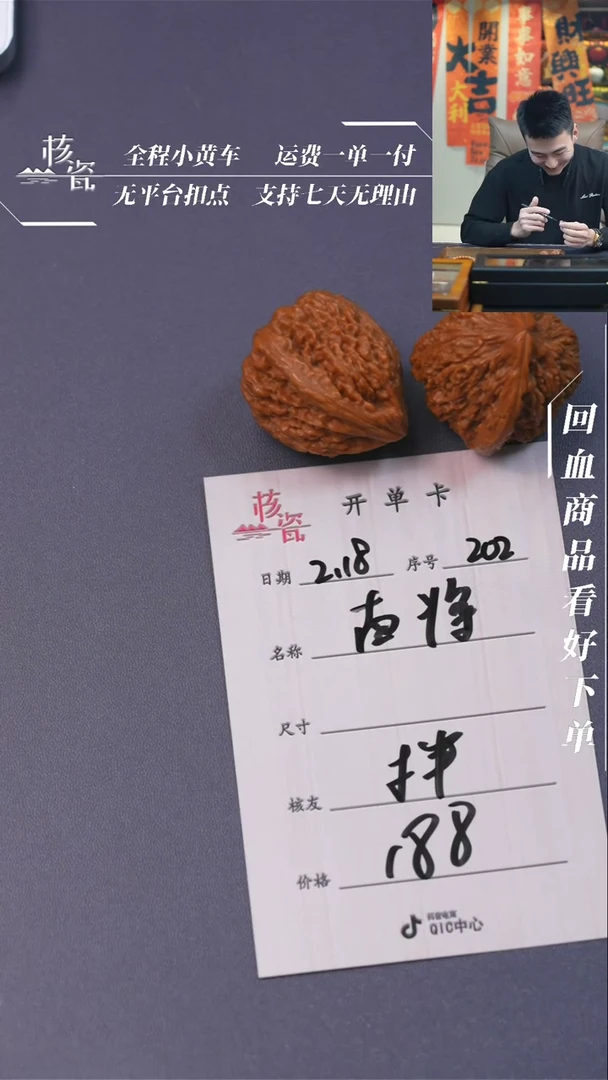 開業
大吉
大利
事事如意
财興旺
核瓷
全程小黄车 运费一单一付
无平台扣点 支持七天无理由
回血商品看好下单
核瓷
开单卡
日期 2.18 序号 202
名称 南将
尺寸
核友 拌
价格 188
抖音电商
QIC中心